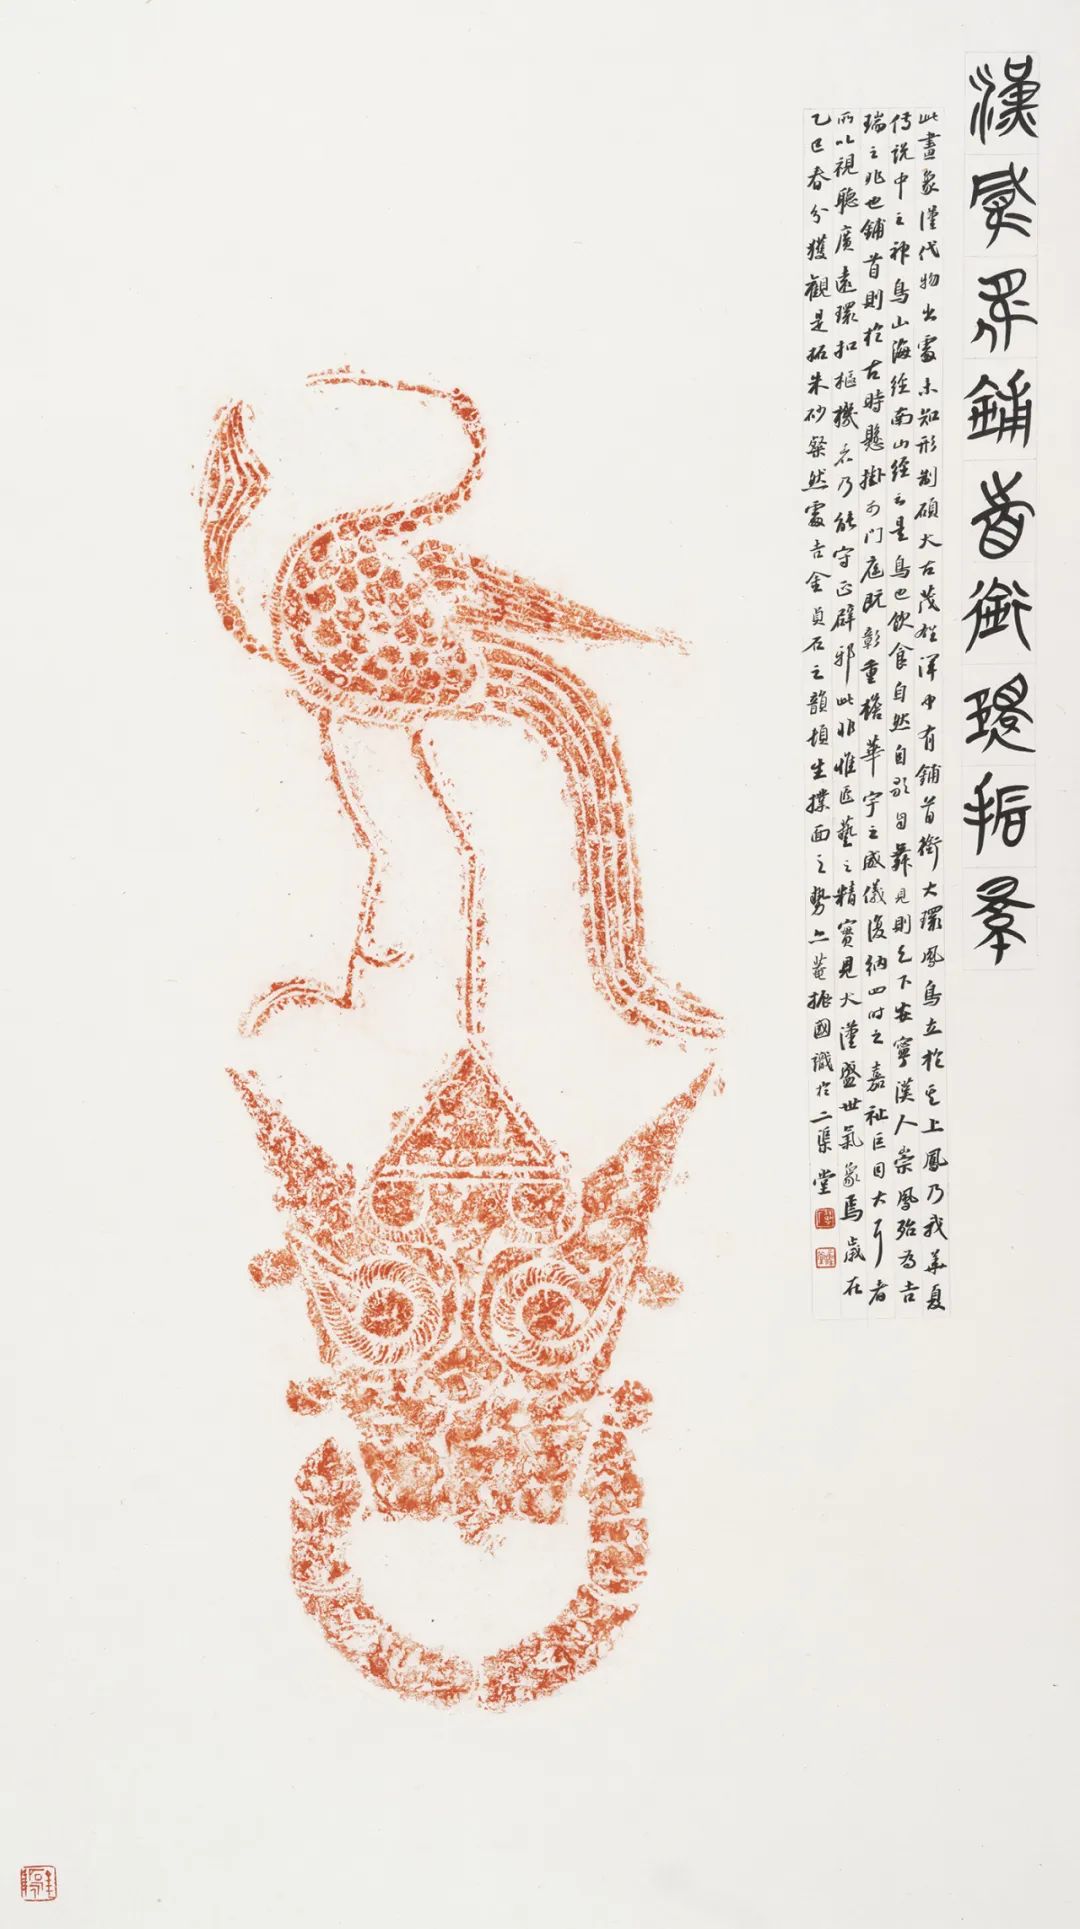 漢鋪首銜環拓
此畫象漢代物出處未知形制碩大古茂雄渾中有鋪首銜大環鳳鳥立於其上鳳乃我華夏
傳說中之神鳥山海經南山經云是鳥也飲食自然自歌自舞見則天下安寧漢人崇鳳殆為吉
瑞之兆也鋪首則於古時懸掛於門庭既彰重檐華宇之威儀復納四時之嘉祉巨目大耳者
所以視聽廣遠環扣樞機者乃能守正辟邪此非惟匠藝之精實見大漢盛世氣象焉歲在
乙巳春分獲觀是拓朱砂粲然吉金貞石之韻頓生撲面之勢菴振國識於二渠堂